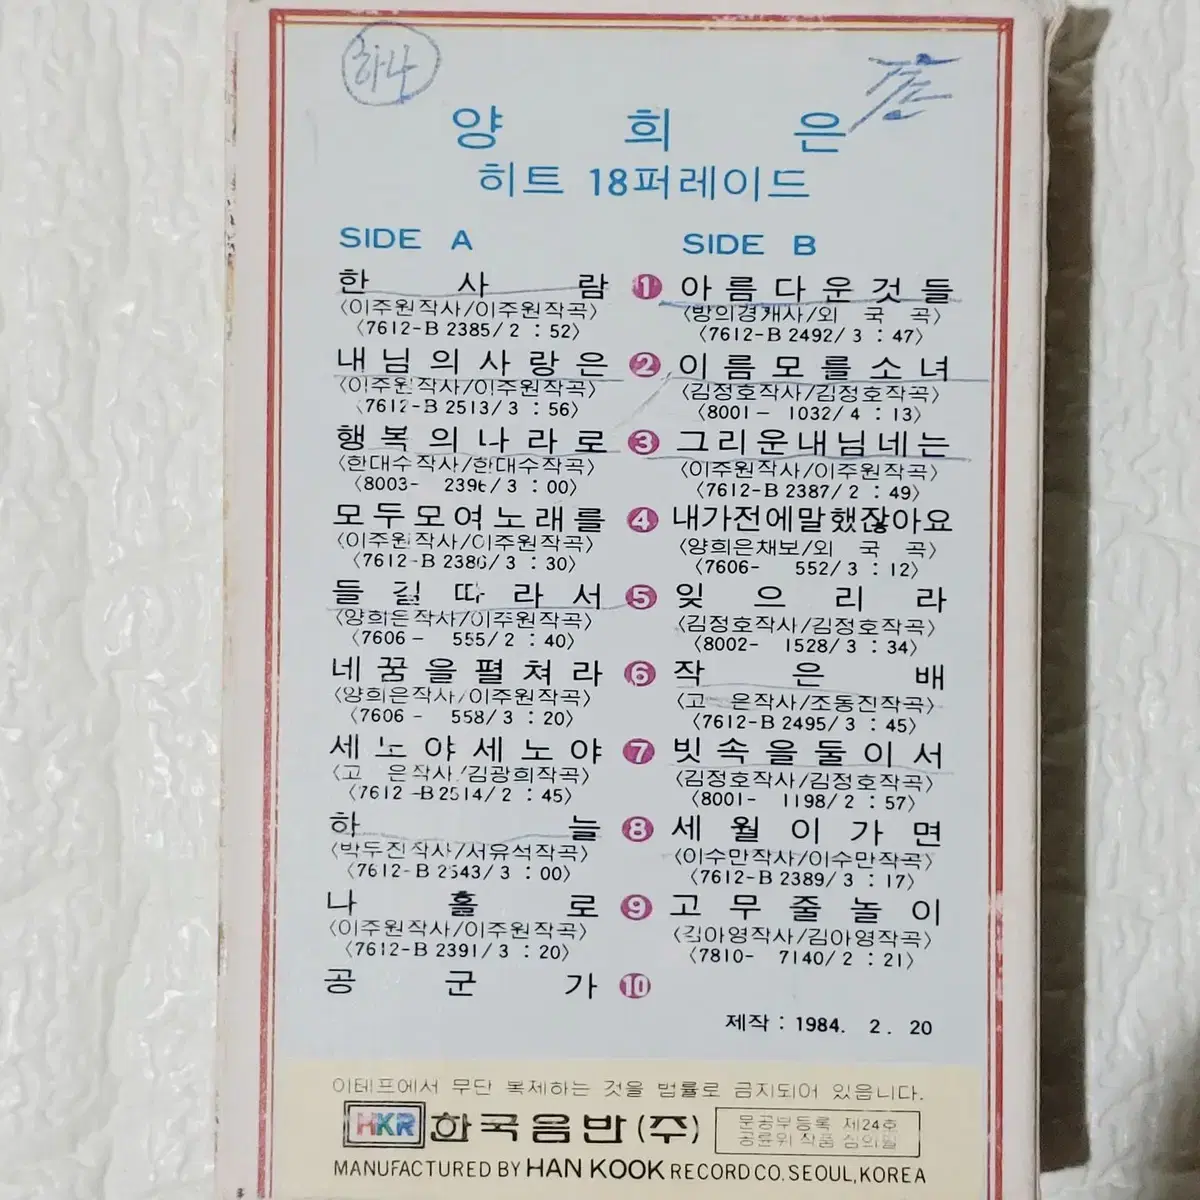 하나
양 희 은
히트 18퍼레이드
SIDE A
한 사 람
〈이주원작사/이주원작곡〉
〈7612-B 2385/2 : 52〉
내님의사랑은
〈이주원작사/이주원작곡〉
〈7612-B 2513/3 : 56〉
행복의나라로
〈한대수작사/한대수작곡〉
〈8003- 2396/3 : 00〉
모두모여노래를
〈이주원작사/이주원작곡〉
〈7612-B 2386/3 : 30〉
들길따라서
〈양희은작사/이주원작곡〉
〈7606- 555/2 : 40〉
네꿈을펼쳐라
〈양희은작사/이주원작곡〉
〈7606- 558/3 : 20〉
세노야세노야
〈고 은작사/김광희작곡〉
〈7612-B 2514/2 : 45〉
하 늘
〈박두진작사/서유석작곡〉
〈7612-B 2543/3 : 00〉
나 홀 로
〈이주원작사/이주원작곡〉
〈7612-B 2391/3 : 20〉
공 군 가
1
2
3
4
5
6
7
8
9
10
SIDE B
아름다운것들
〈방의경개사/외 국 곡〉
〈7612-B 2492/3 : 47〉
이름모를소녀
〈김정호작사/김정호작곡〉
〈8001- 1032/4 : 13〉
그리운내님네는
〈이주원작사/이주원작곡〉
〈7612-B 2387/2 : 49〉
내가전에말했잖아요
〈양희은채보/외 국 곡〉
〈7606- 552/3 : 12〉
잊 으 리 라
〈김정호작사/김정호작곡〉
〈8002- 1528/3 : 34〉
작 은 배
〈고 은작사/조동진작곡〉
〈7612-B 2495/3 : 45〉
빗속을둘이서
〈김정호작사/김정호작곡〉
〈8001- 1198/2 : 57〉
세월이가면
〈이수만작사/이수만작곡〉
〈7612-B 2389/3 : 17〉
고무줄놀이
〈김아영작사/김아영작곡〉
〈7810- 7140/2 : 21〉
제작 : 1984. 2. 20
이테프에서 무단 복제하는 것을 법률로 금지되어 있읍니다.
HKR 한국음반(주)
문공부등록 제24호
공륜위 작품 심의필
MANUFACTURED BY HAN KOOK RECORD CO. SEOUL, KOREA